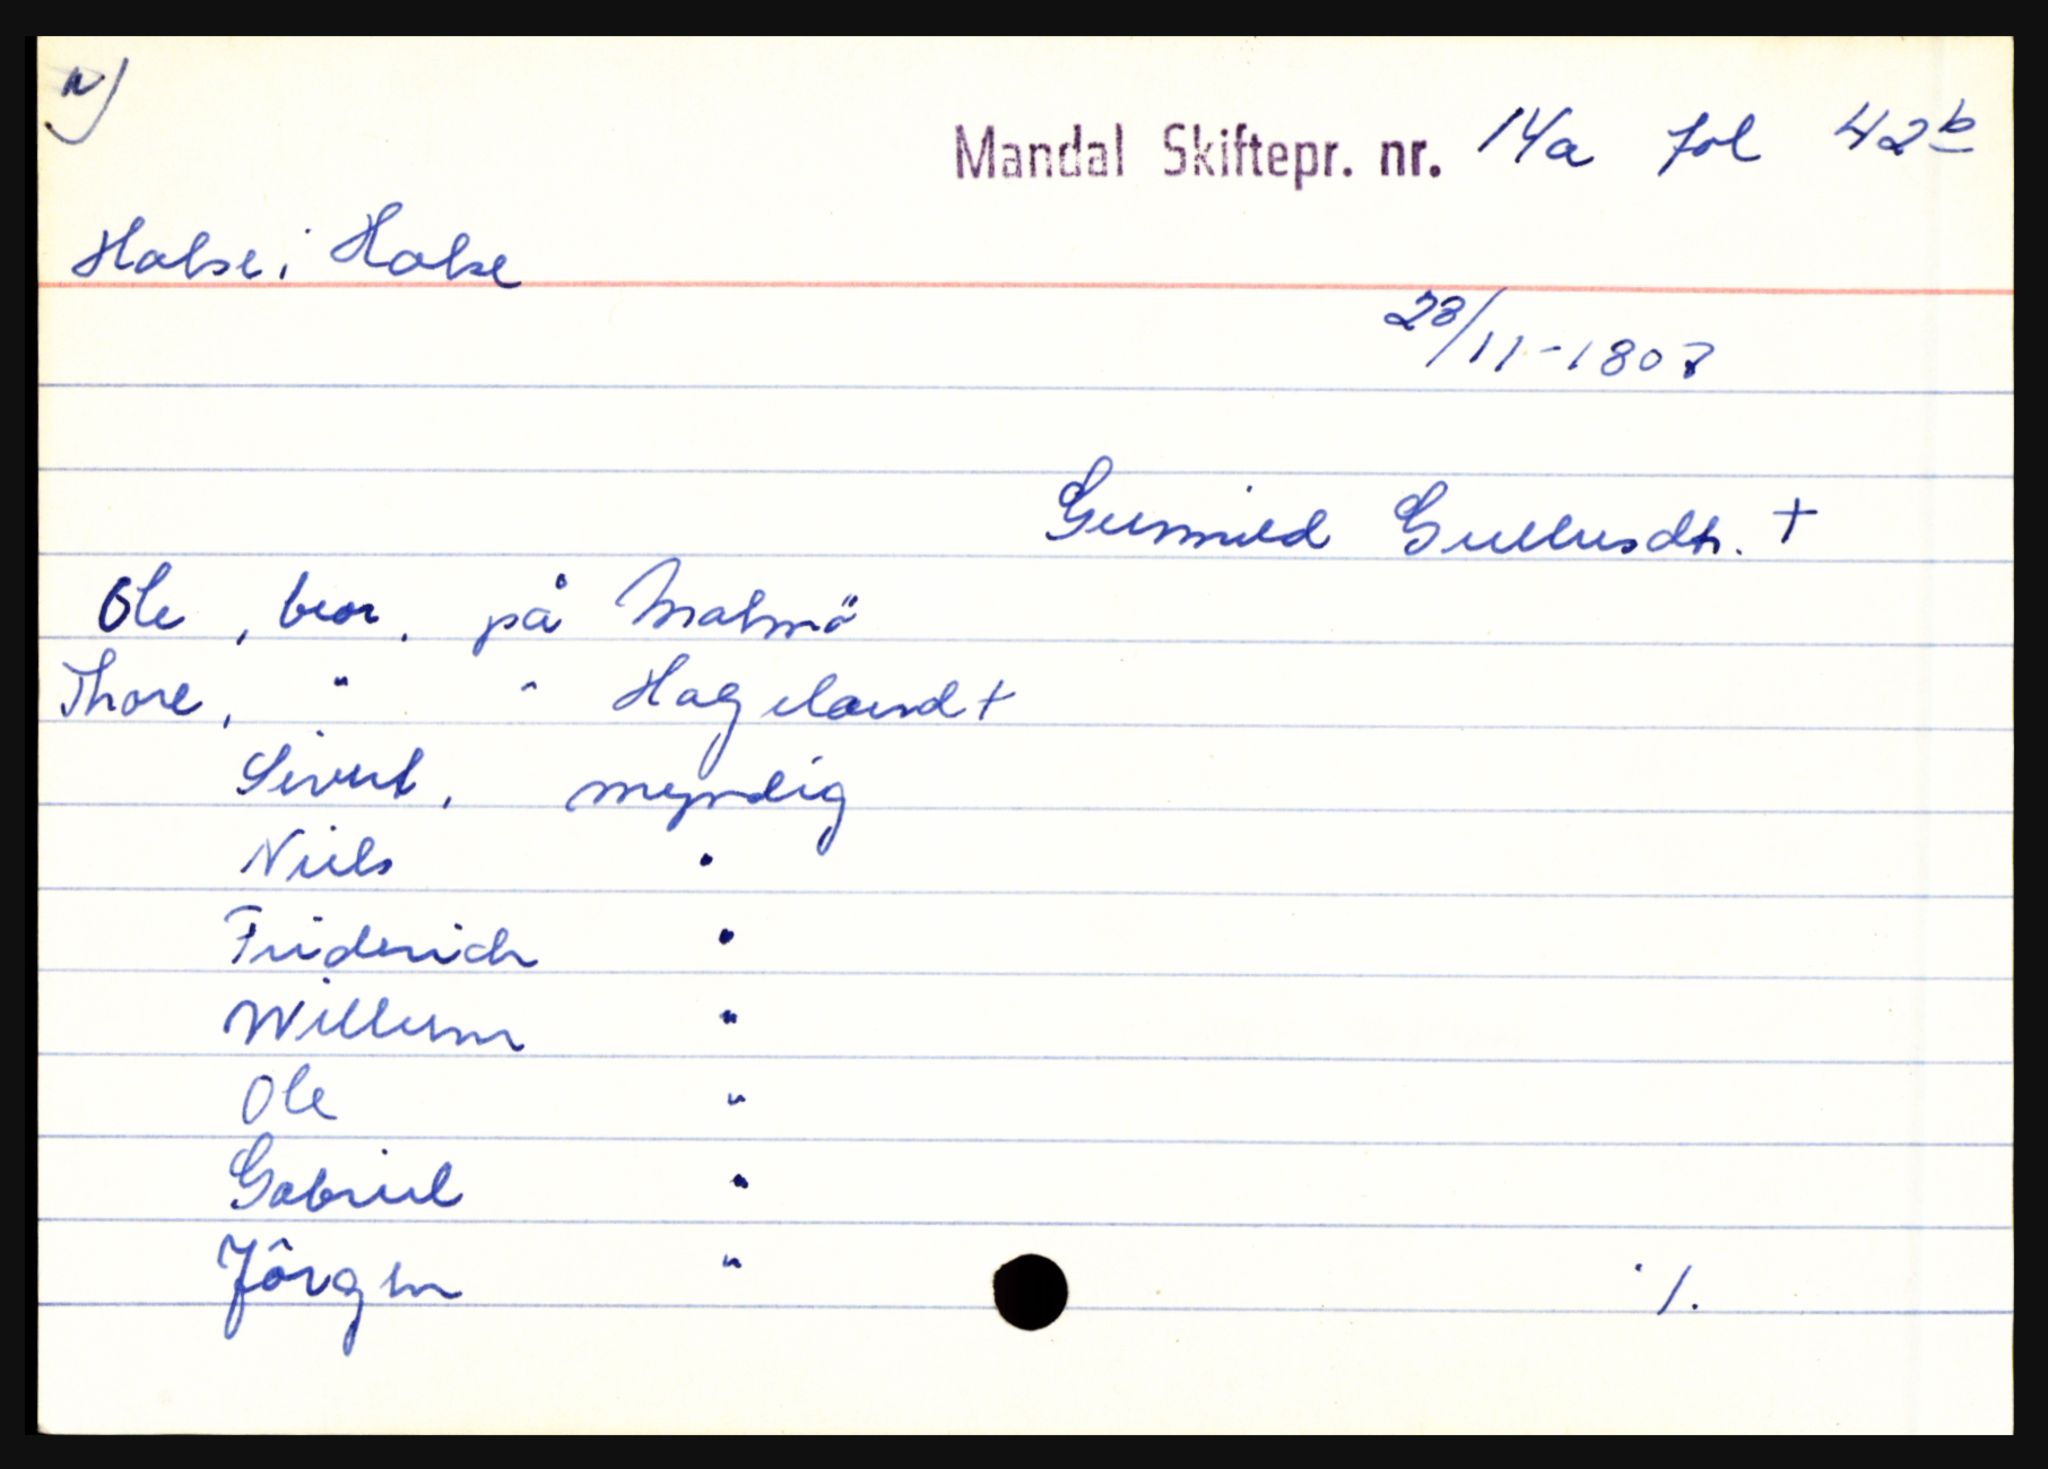 N)
Mandal Skiftepr. nr. 14a fol 42b
Halse i Halse
23/11-1808
Gunnild Gullusdtr. +
Ole , bror . på Malmö
Thore , " " Hageland +
Sivert , myndig
Niels "
Friderich "
Willum "
Ole "
Gabriel "
Jörgen "
./.